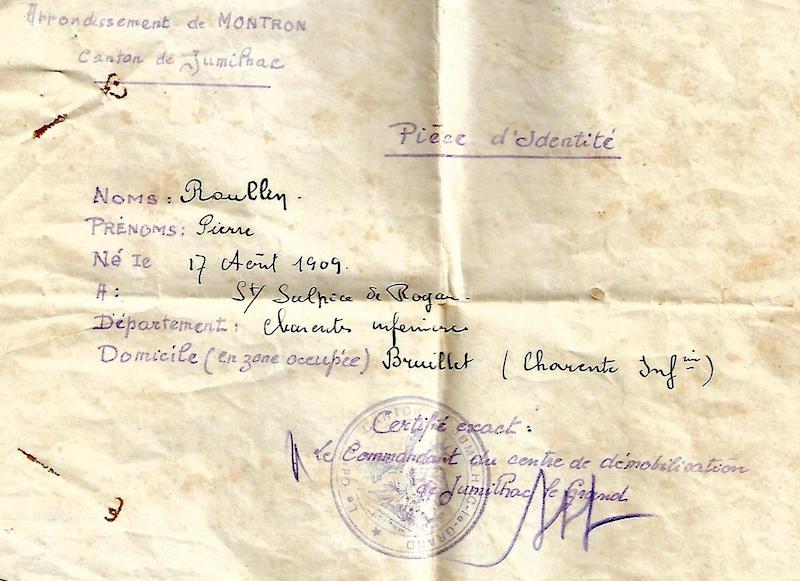 Arrondissement de MONTRON
Canton de Jumilhac
Pièce d'Identité
NOMS: Roullin.
PRÉNOMS: Pierre
Né le 17 Août 1909.
A: St Sulpice de Royan.
Département: Charentes inferieure
Domicile (en zone occupée) Breuillet (Charente Infre)
Certifié exact:
Le Commandant du centre de démobilisation
de Jumilhac le Grand